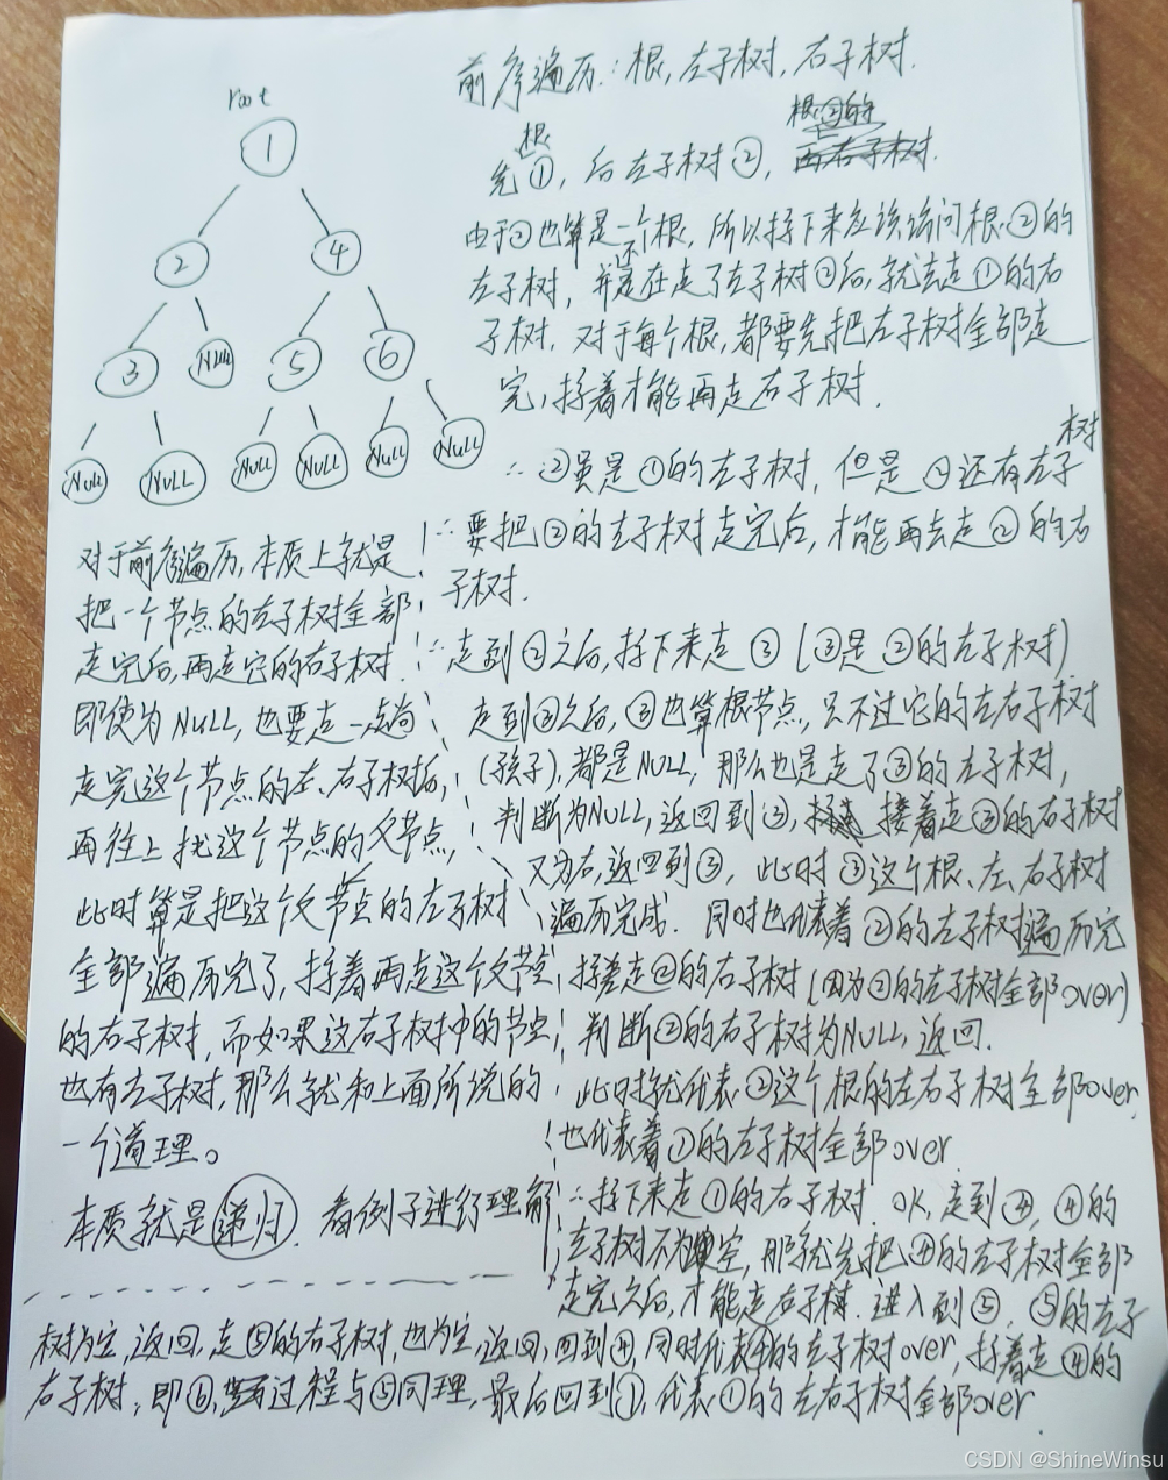 root
1
2
4
3
NULL
5
6
NULL
NULL
NULL
NULL
NULL
NULL
前序遍历:根,左子树,右子树.
根
根②的
先①,后左子树②,再右子树.
由于②也算是一个根,所以接下来应该访问根②的
还
左子树,并是在走了左子树②后,就去走①的右
子树. 对于每个根,都要先把左子树全部走
完,接着才能再走右子树.
树
∵②虽是①的左子树,但是②还有左子
∴要把②的左子树走完后,才能再去走②的右
子树.
∴走到②之后,接下来走③(③是②的左子树)
走到③之后,③也算根节点,只不过它的左右子树
(孩子),都是NULL,那么也是走了③的左子树,
判断为NULL,返回到③,接着走③的右子树
又为右,返回到③,此时③这个根、左、右子树
遍历完成. 同时也代表着②的左子树遍历完
接着走②的右子树(因为②的左子树全部over)
判断②的右子树为NULL,返回.
此时就代表②这个根的左右子树全部over,
也代表着①的左子树全部over.
∴接下来走①的右子树. OK,走到④,④的
左子树不为空,那就先把④的左子树全部
走完之后,才能走右子树. 进入到⑤. ⑤的左子
对于前序遍历,本质上就是
把一个节点的左子树全部
走完后,再走它的右子树.
即使为NULL,也要走一趟
走完这个节点的左、右子树后,
再往上找这个节点的父节点,
此时算是把这个父节点的左子树
全部遍历完了,接着再走这个父节点
的右子树,而如果这右子树中的节点
也有左子树,那么就和上面所说的
一个道理。
本质就是递归. 看例子进行理解
树为空,返回,走⑤的右子树,也为空,返回,回到④,同时代表④的左子树over,接着走④的
右子树,即⑥,过程与⑤同理,最后回到①,代表①的左右子树全部over.
CSDN @ShineWinsu